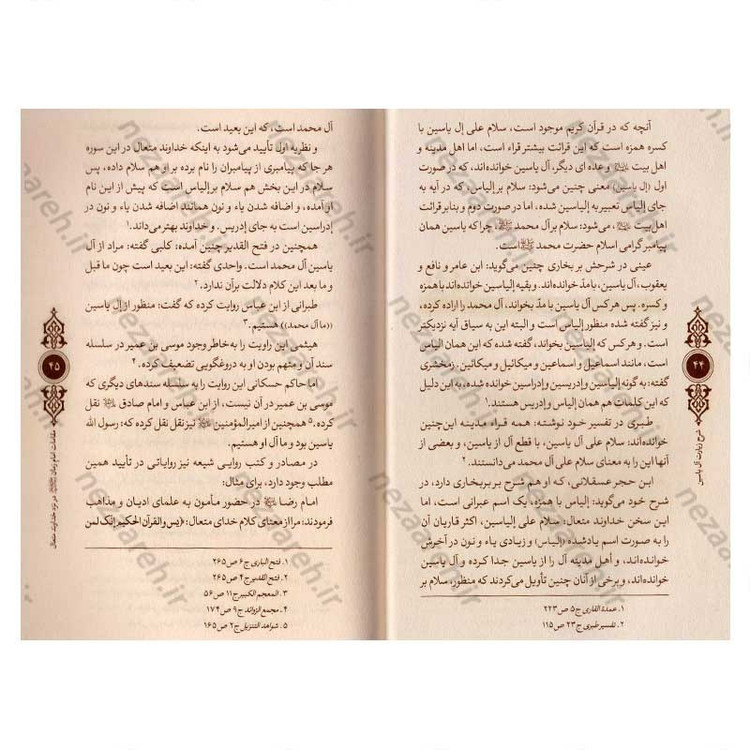 آنچه که در قرآن کریم موجود است، سلام علی إل یاسین با
کسره همزه است که این قرائت بیشتر قراء است، اما اهل مدینه و
اهل بیت و عده ای دیگر، آل یاسین خوانده‌اند، که در صورت
اول (إل یاسین) معنی چنین می‌شود: سلام بر إلیاسین، که در آیه به
جای إلیاس تعبیر به إلیاسین شده، اما در صورت دوم و بنابر قرائت
اهل بیت، می‌شود: سلام بر آل محمد، چرا که یاسین همان
پیامبر گرامی اسلام حضرت محمد است.
عینی در شرحش بر بخاری چنین می‌گوید: ابن عامر و نافع و
یعقوب، آل یاسین، با مدّ خوانده‌اند. و بقیه إلیاسین خوانده‌اند با همزه
و کسره. پس هرکس آل یاسین با مدّ بخواند، آل محمد را اراده کرده،
و نیز گفته شده منظور إلیاس است و البته این به سیاق آیه نزدیکتر
است. و هرکس که إلیاسین بخواند، گفته شده که این همان الیاس
است، مانند اسماعیل و اسماعین و میکائیل و میکائین. زمخشری
گفته: به گونه إلیاسین و إدریسین و إدراسین خوانده شده، به این دلیل
که این کلمات هم همان إلیاس و إدریس هستند.۱
طبری در تفسیر خود نوشته: همه قراء مدینه این‌چنین
خوانده‌اند: سلام علی آل یاسین، با قطع آل از یاسین، و بعضی از
آنها این را به معنای سلام علی آل محمد می‌دانستند.۲
ابن حجر عسقلانی، که او هم شرح بر بخاری دارد، در
شرح خود می‌گوید: إلیاس با همزه، یک اسم عبرانی است، اما
این سخن خداوند متعال: سلام علی إلیاسین، اکثر قاریان آن
را به صورت اسم یادشده (إلیاس) و زیادی یاء و نون در آخرش
خوانده‌اند، و أهل مدینه آل را از یاسین جدا کرده و آل یاسین
خوانده‌اند، و برخی از آنان چنین تأویل می‌کردند که منظور، سلام بر
۱. عمدة القاری ج۵ ص۲۲۳
۲. تفسیر طبری ج۲۳ ص۱۱۵
۴۴
شرح زیارت آل یاسین
آل محمد است، که این بعید است.
و نظریه اول تأیید می‌شود به اینکه خداوند متعال در این سوره
هر جا که پیامبری از پیامبران را نام برده بر او هم سلام داده، پس
سلام در این بخش هم سلام بر إلیاس است که پیش از این نام
او آمده، و اضافه شدن یاء و نون همانند اضافه شدن یاء و نون در
إدراسین است به جای إدریس. و خداوند بهتر می‌داند.۱
همچنین در فتح القدیر چنین آمده: کلبی گفته: مراد از آل
یاسین آل محمد است. واحدی گفته: این بعید است چون ما قبل
و ما بعد این کلام دلالت بر آن ندارد.۲
طبرانی از ابن عباس روایت کرده که گفت: منظور از إل یاسین
((ما آل محمد)) هستیم.۳
هیثمی این راویت را به خاطر وجود موسی بن عمیر در سلسله
سند آن و متهم بودن او به دروغگویی تضعیف کرده.۴
اما حاکم حسکانی این روایت را به سلسله سندهای دیگری که
موسی بن عمیر در آن نیست، از ابن عباس و امام صادق نقل
کرده.۵ همچنین از امیرالمؤمنین نیز نقل نقل کرده که: رسول الله
یاسین بود و ما آل او هستیم.
در مصادر و کتب روایی شیعه نیز روایاتی در تأیید همین
مطلب وجود دارد، برای مثال:
امام رضا در حضور مأمون به علمای ادیان و مذاهب
فرمودند: مرا از معنای کلام خدای متعال: (یس والقرآن الحکیم إنک لمن
۱. فتح الباری ج۶ ص۲۶۵
۲. فتح القدیر ج۴ ص۲۶۵
۳. المعجم الکبیر ج۱۱ ص۵۶
۴. مجمع الزوائد ج۹ ص۱۷۴
۵. شواهد التنزیل ج۲ ص۱۶۵
۴۵
مقامات امام زمان در نزد خداوند متعال
nezaareh.ir